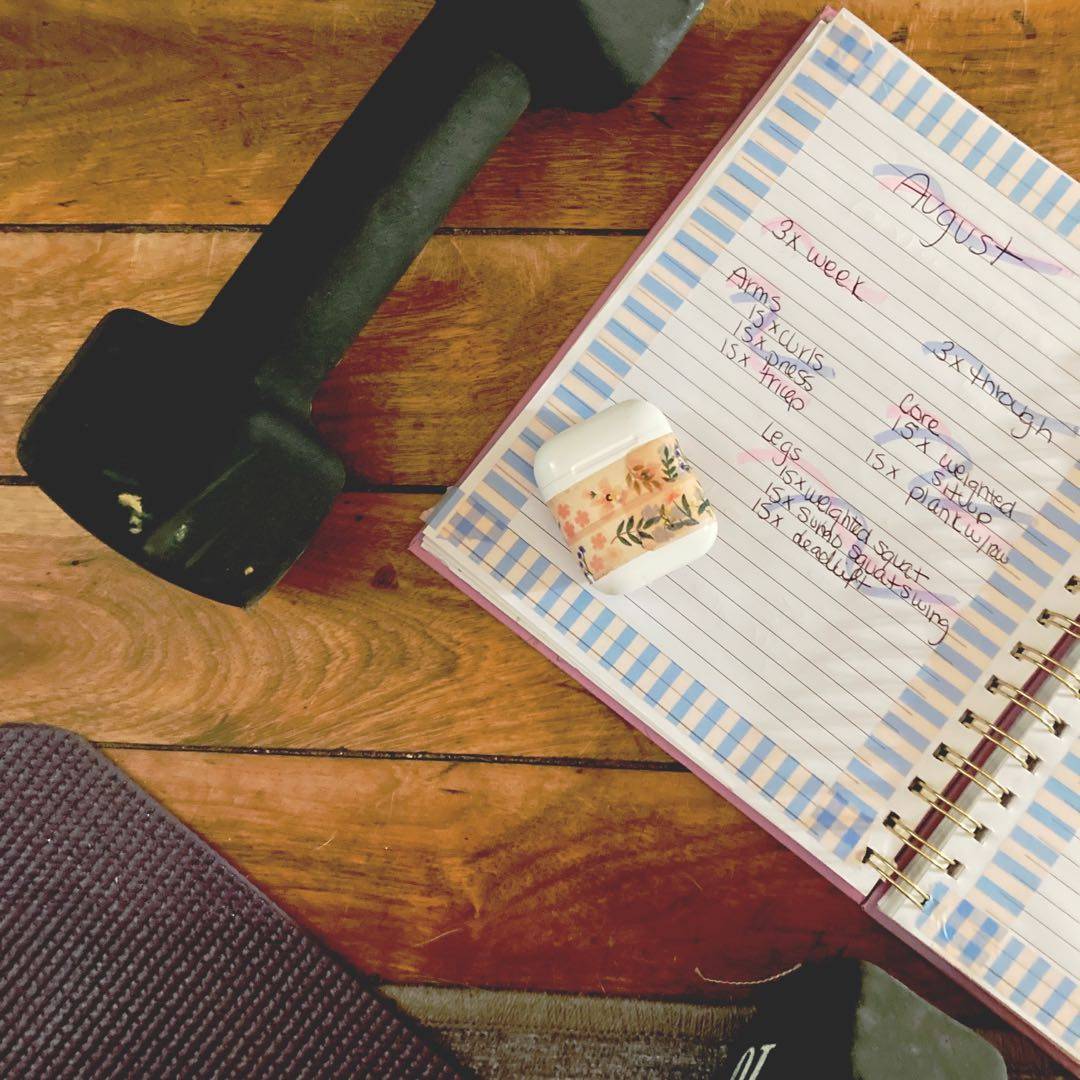 August
3x week
3x through
Arms
15x curls
15x press
15x tricep
Core
15x weighted
situp
15x plank w/row
Legs
15x weighted squat
15x sumo squat swing
15x deadlift
10